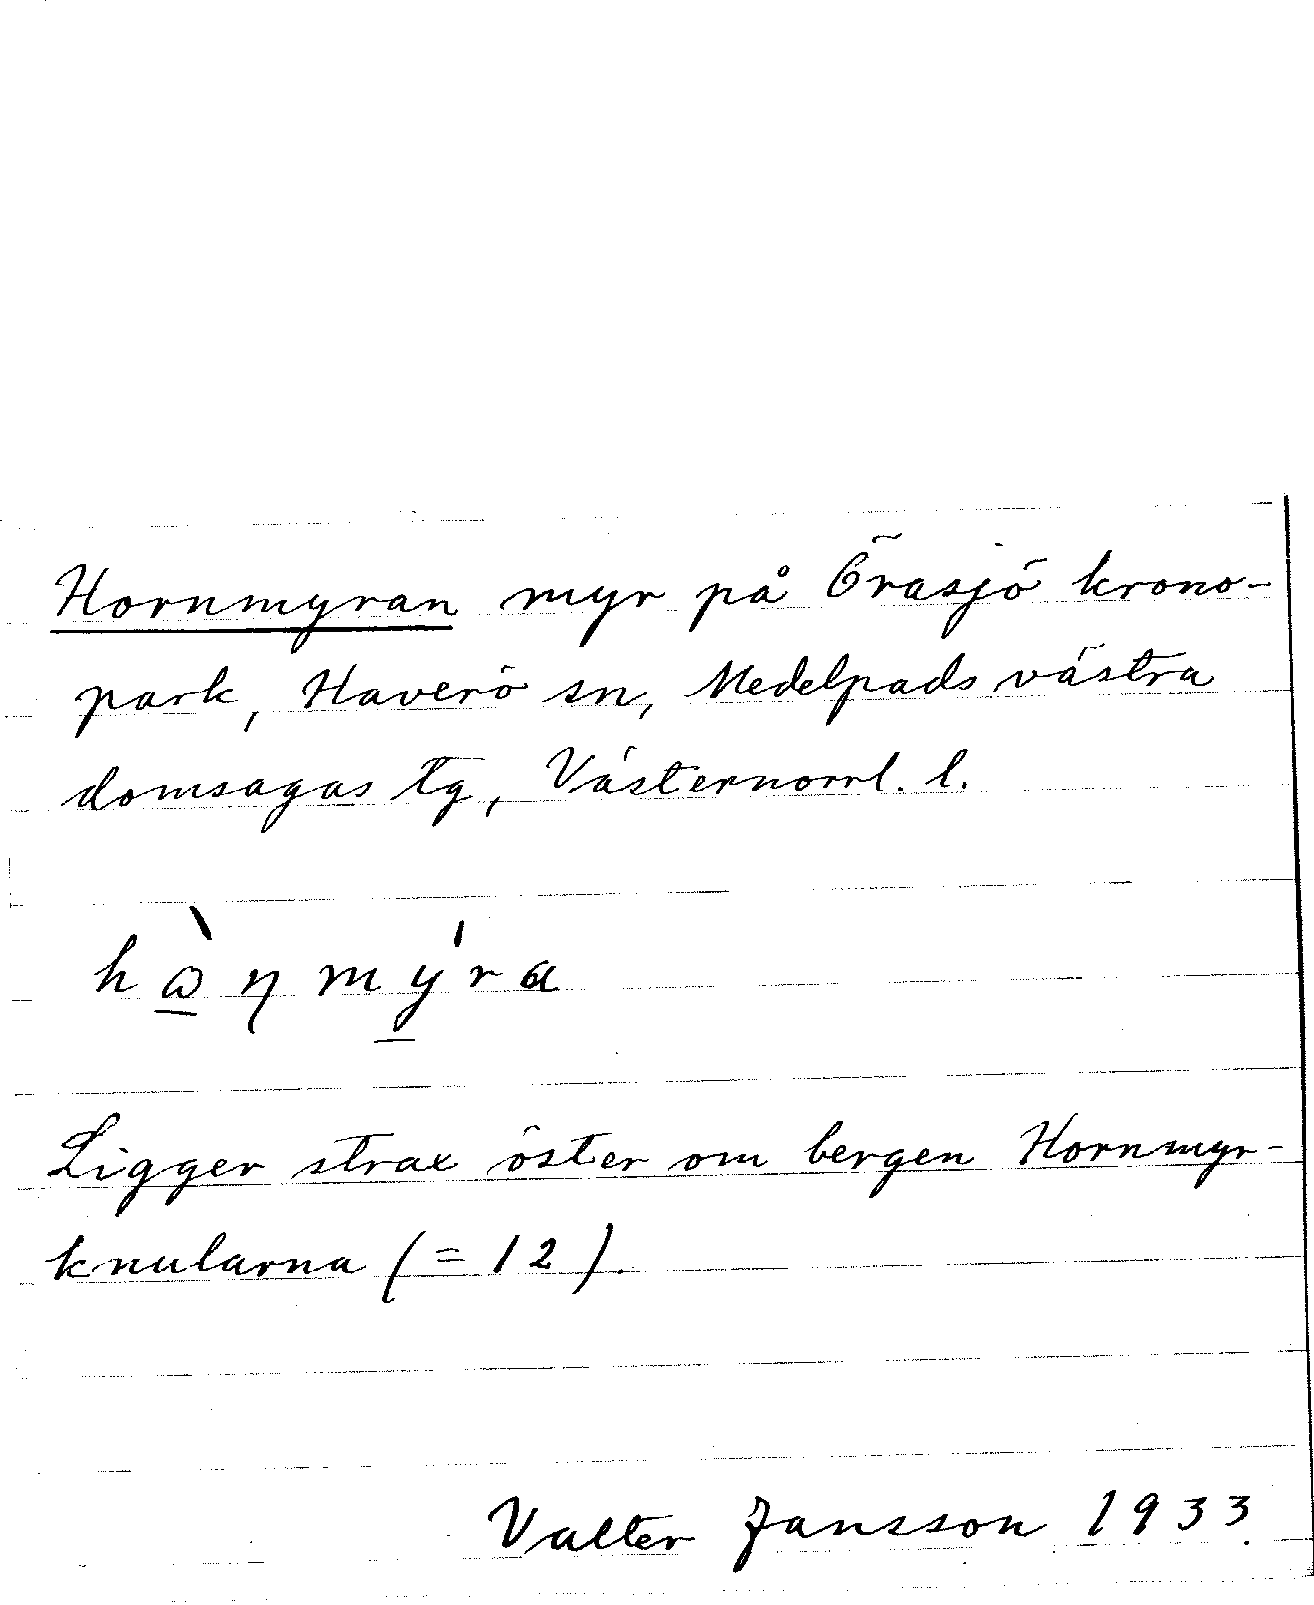 Hornmyran myr på Örasjö krono-
park, Haverö sn, Medelpads västra
domsagas tg, Västernorrl. l.
hn̥mýra
Ligger strax öster om bergen Hornmyr-
knularna (= 12).
Valter Jansson 1933.